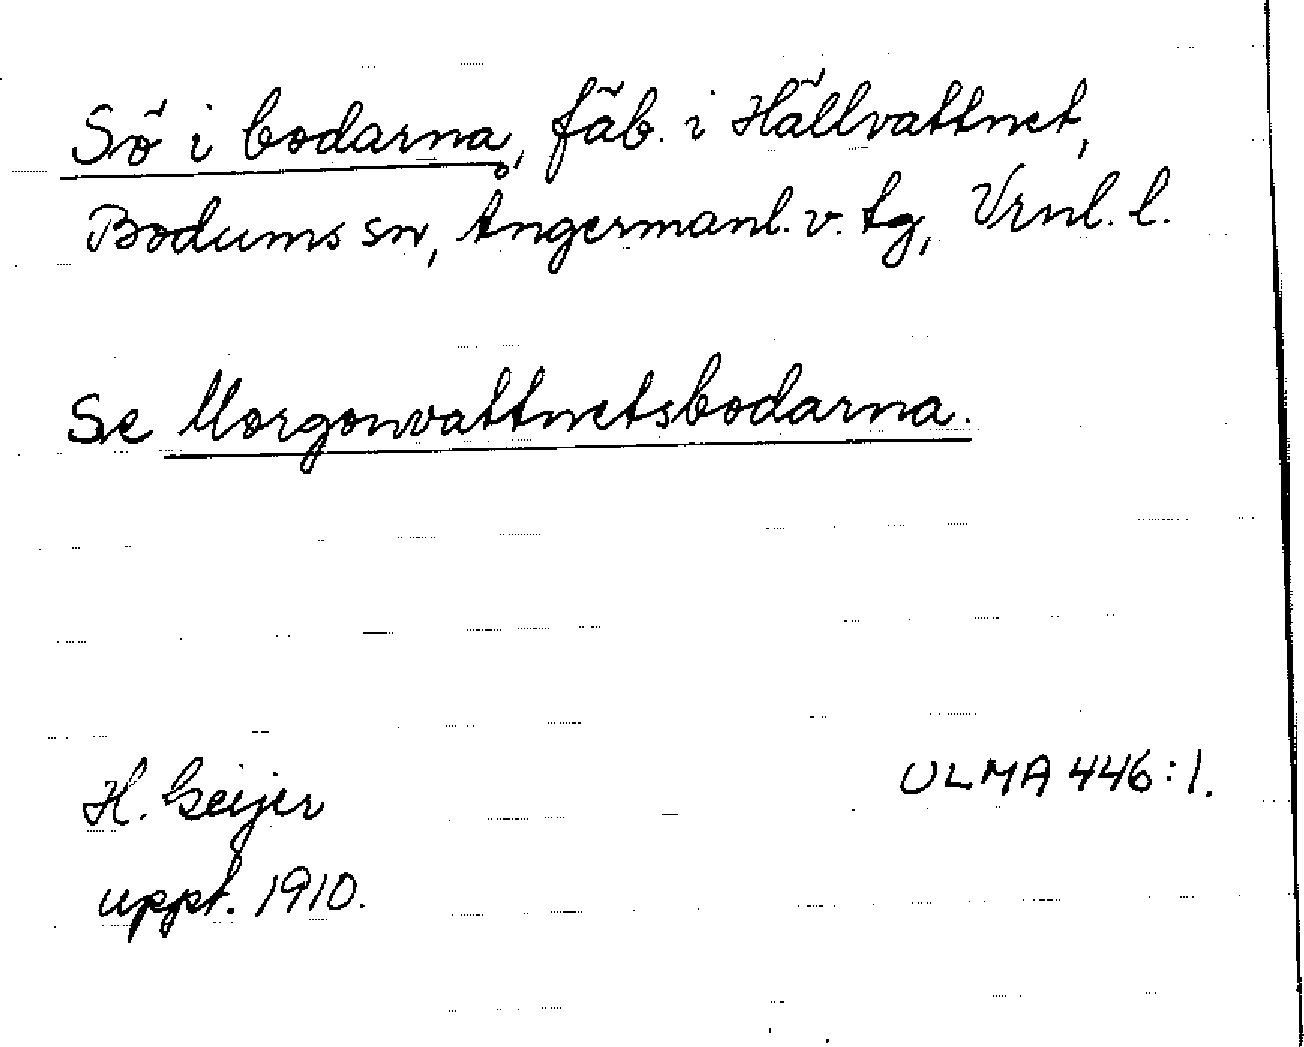 Sö i bodarna, fäb. i Hällvattnet,
Bodums sn, Ångermanl. v. tg, Vrnl. l.
Se Morgonvattnetsbodarna.
H. Geijer
ULMA 446:1.
uppt. 1910.